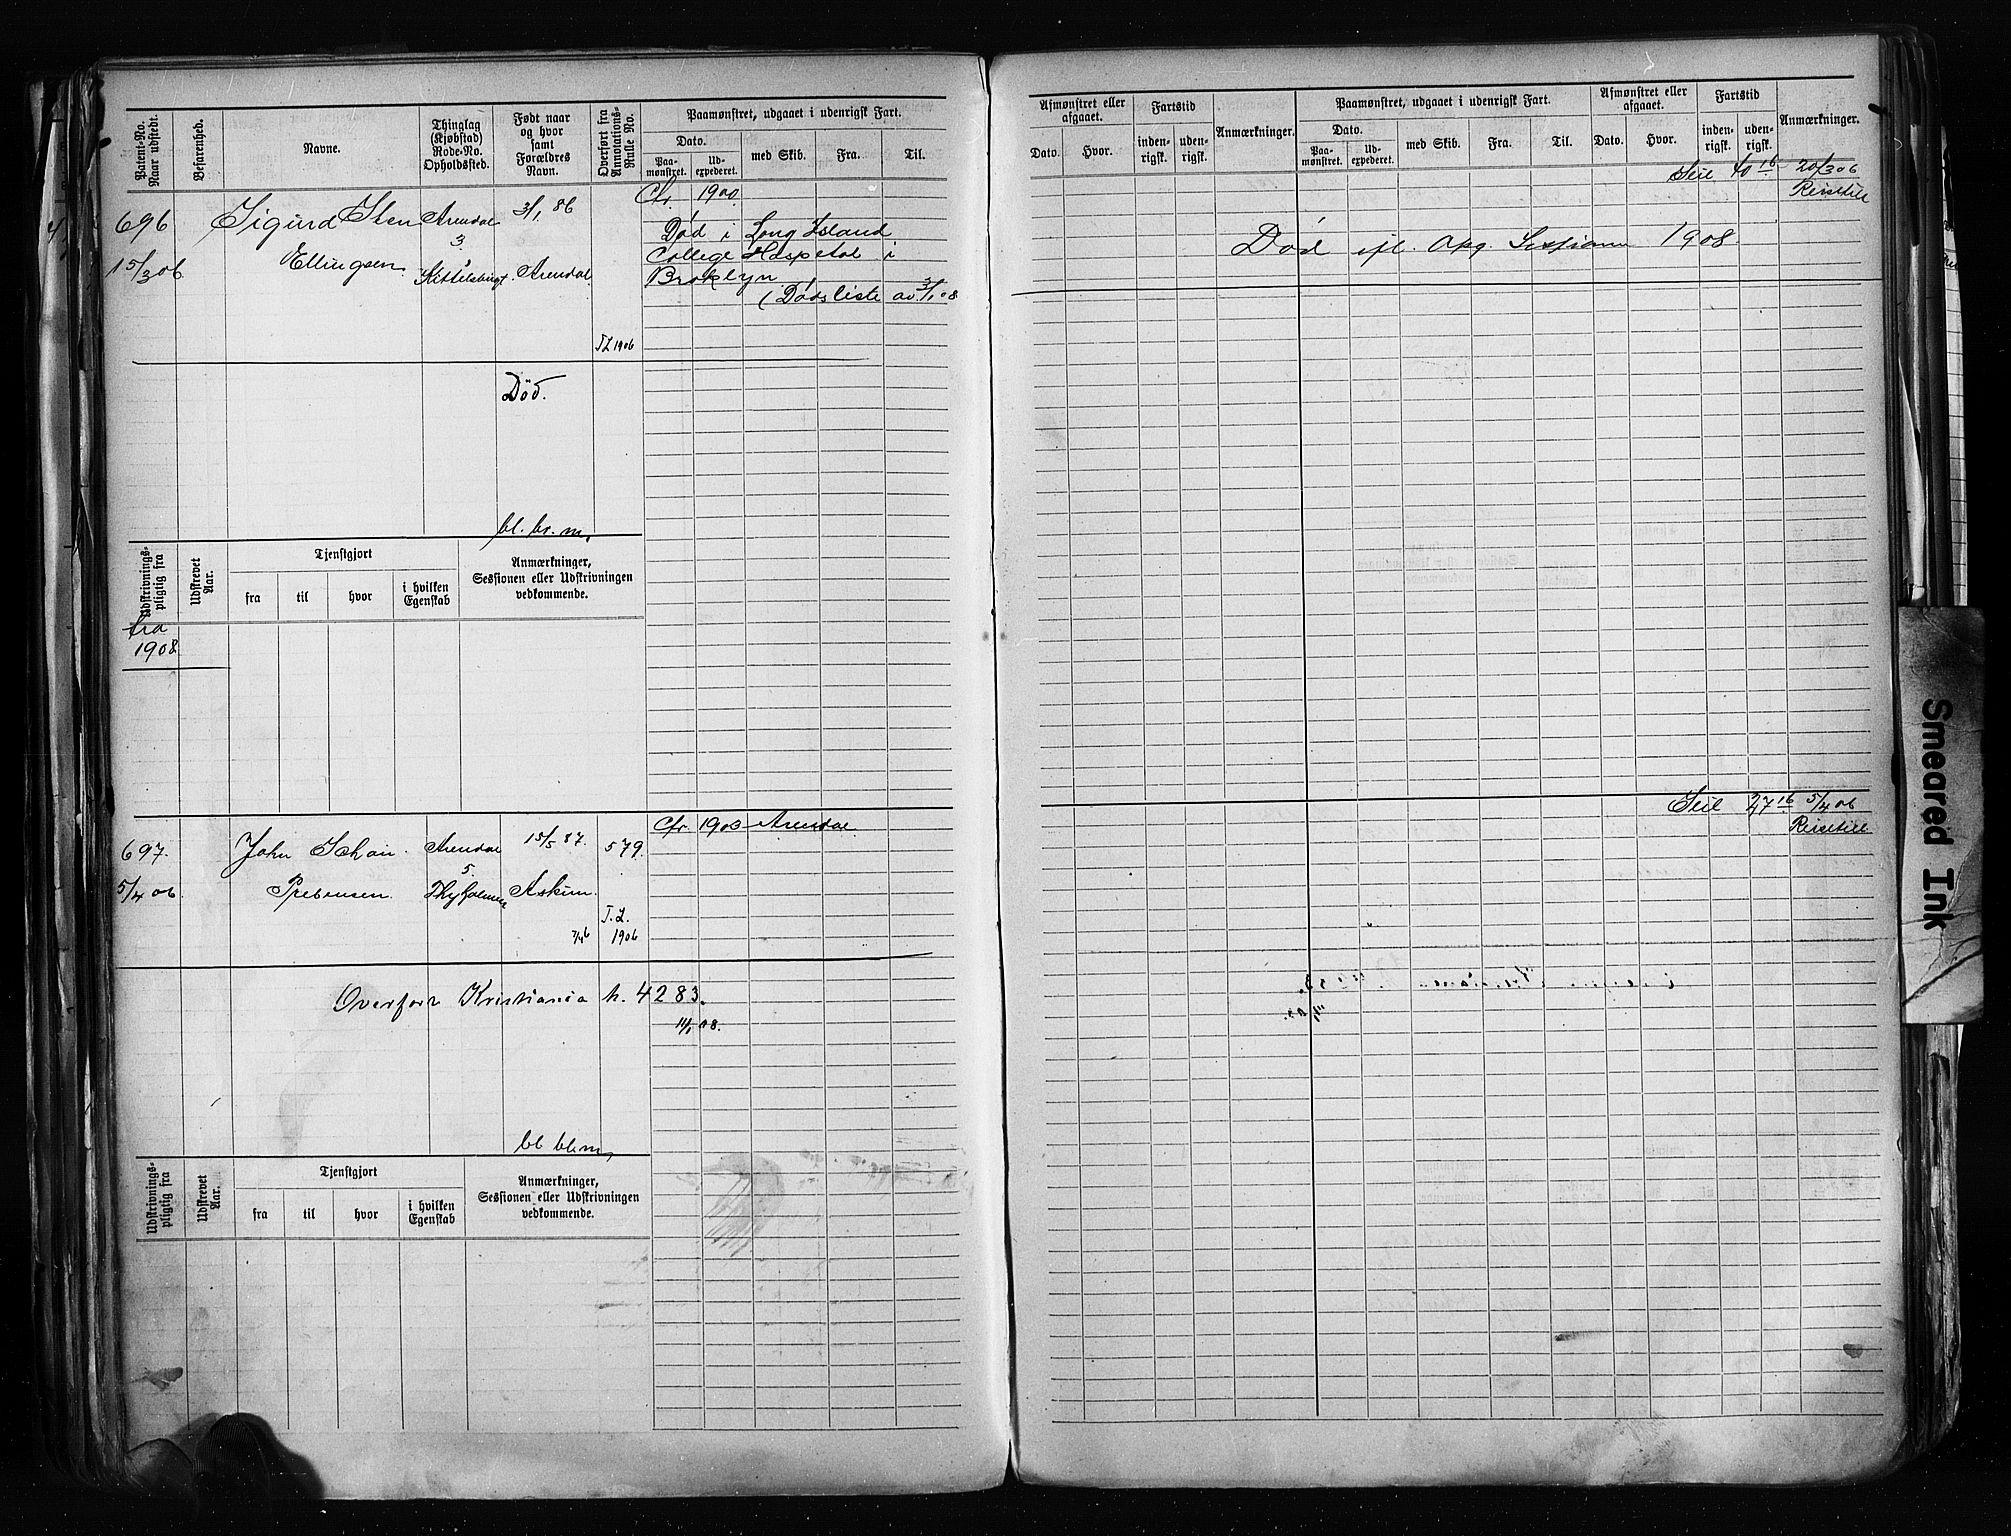 Patent-No. Naar udstedt.
Befarenhed.
Navne.
Thinglag (Kjøbstad) Rode-No. Opholdssted.
Født naar og hvor samt Forældres Navn.
Overført fra Annotations-Rulle No.
Paamønstret, udgaaet i udenrigsk Fart.
Dato.
Paa-mønstret.
Ud-expederet.
med Skib.
Fra.
Til.
696
15/3 06
Sigurd Sten
Ellingsen
Arendal
3
Kittelsbugt.
3/1 86
Arendal
T L 1906
Cfr. 1900
Død i Long Island
College Hospetal i
Broklyn
(Dødsliste av 3/1 08
Død.
bl. br. m.
Udskrivnings-pligtig fra
Udskrevet Aar.
Tjenstgjort
fra
til
hvor
i hvilken Egenskab
Anmærkninger, Sessionen eller Udskrivningen vedkommende.
fra
1908
697.
5/4 06
John Schau
Prebensen
Arendal
5.
15/5 87.
Askim
579.
T. L.
1906
Cfr. 1903 Arendal
Overført Kristiania N. 4283.
11/1 08.
Udskrivnings-pligtig fra
Udskrevet Aar.
Tjenstgjort
fra
til
hvor
i hvilken Egenskab
Anmærkninger, Sessionen eller Udskrivningen vedkommende.
Afmønstret eller afgaaet.
Dato.
Hvor.
Fartstid
inden-rigsk.
uden-rigsk.
Anmærkninger.
Paamønstret, udgaaet i udenrigsk Fart.
Dato.
Paa-mønstret.
Ud-expederet.
med Skib.
Fra.
Til.
Afmønstret eller afgaaet.
Dato.
Hvor.
Fartstid
inden-rigsk.
uden-rigsk.
Anmærkninger.
Seil 40 16 20/3 06
Reisetill
Død ifl. Opg. Sessionen 1908.
Seil 27 16 5/4 06
Reisetill
Smeared Ink